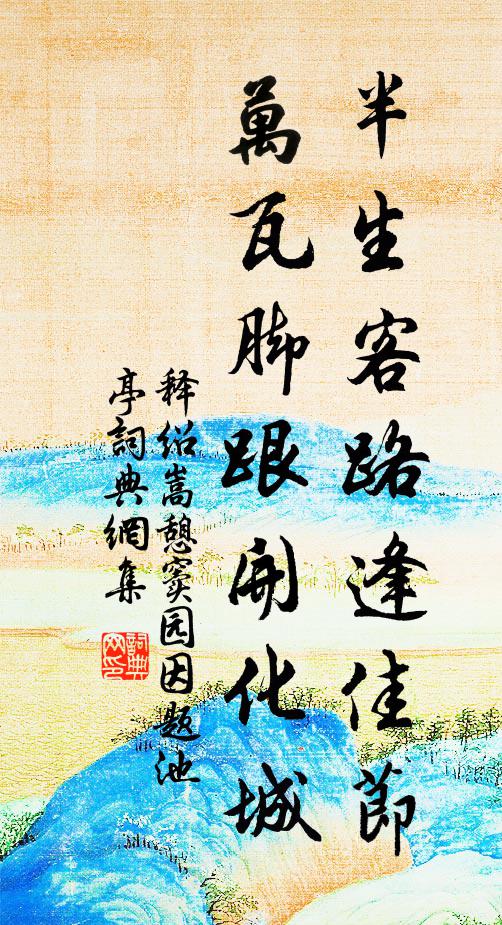 半生客路逢佳節
萬瓦脚跟開化城
释绍嵩憩窦园因题池
亭詞典網集
詞典網印